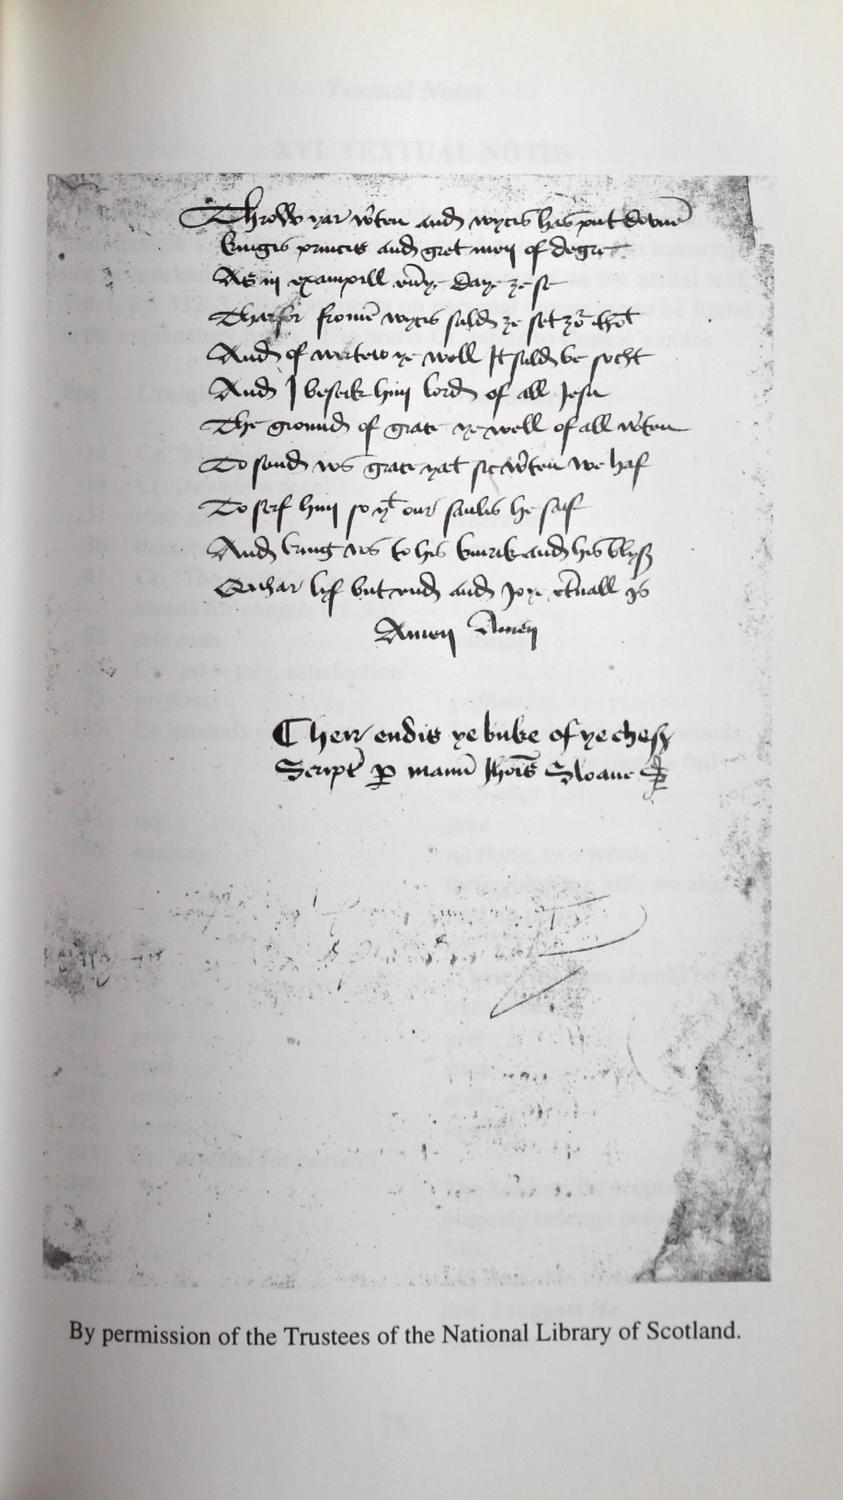 Throw yar vertew and wycis has put doune
Kingis princis and gret men of degre
As in exampill euirye daye ȝe se
Tharfor frome wycis suld ȝe set ȝour thot
And of wertew ye well It suld be socht
And I beseik him lord of all Jesu
The ground of grace ye well of all vertew
To send ws grace yat sic vertew we haf
To serf him so yt our saulis he saif
And bring ws to his kinrik and his blyss
Quhar lyf but end and Joye eternall is
Amen Amen
Heir endis ye buke of ye chess
Script per manum Jhois Sloane
By permission of the Trustees of the National Library of Scotland.